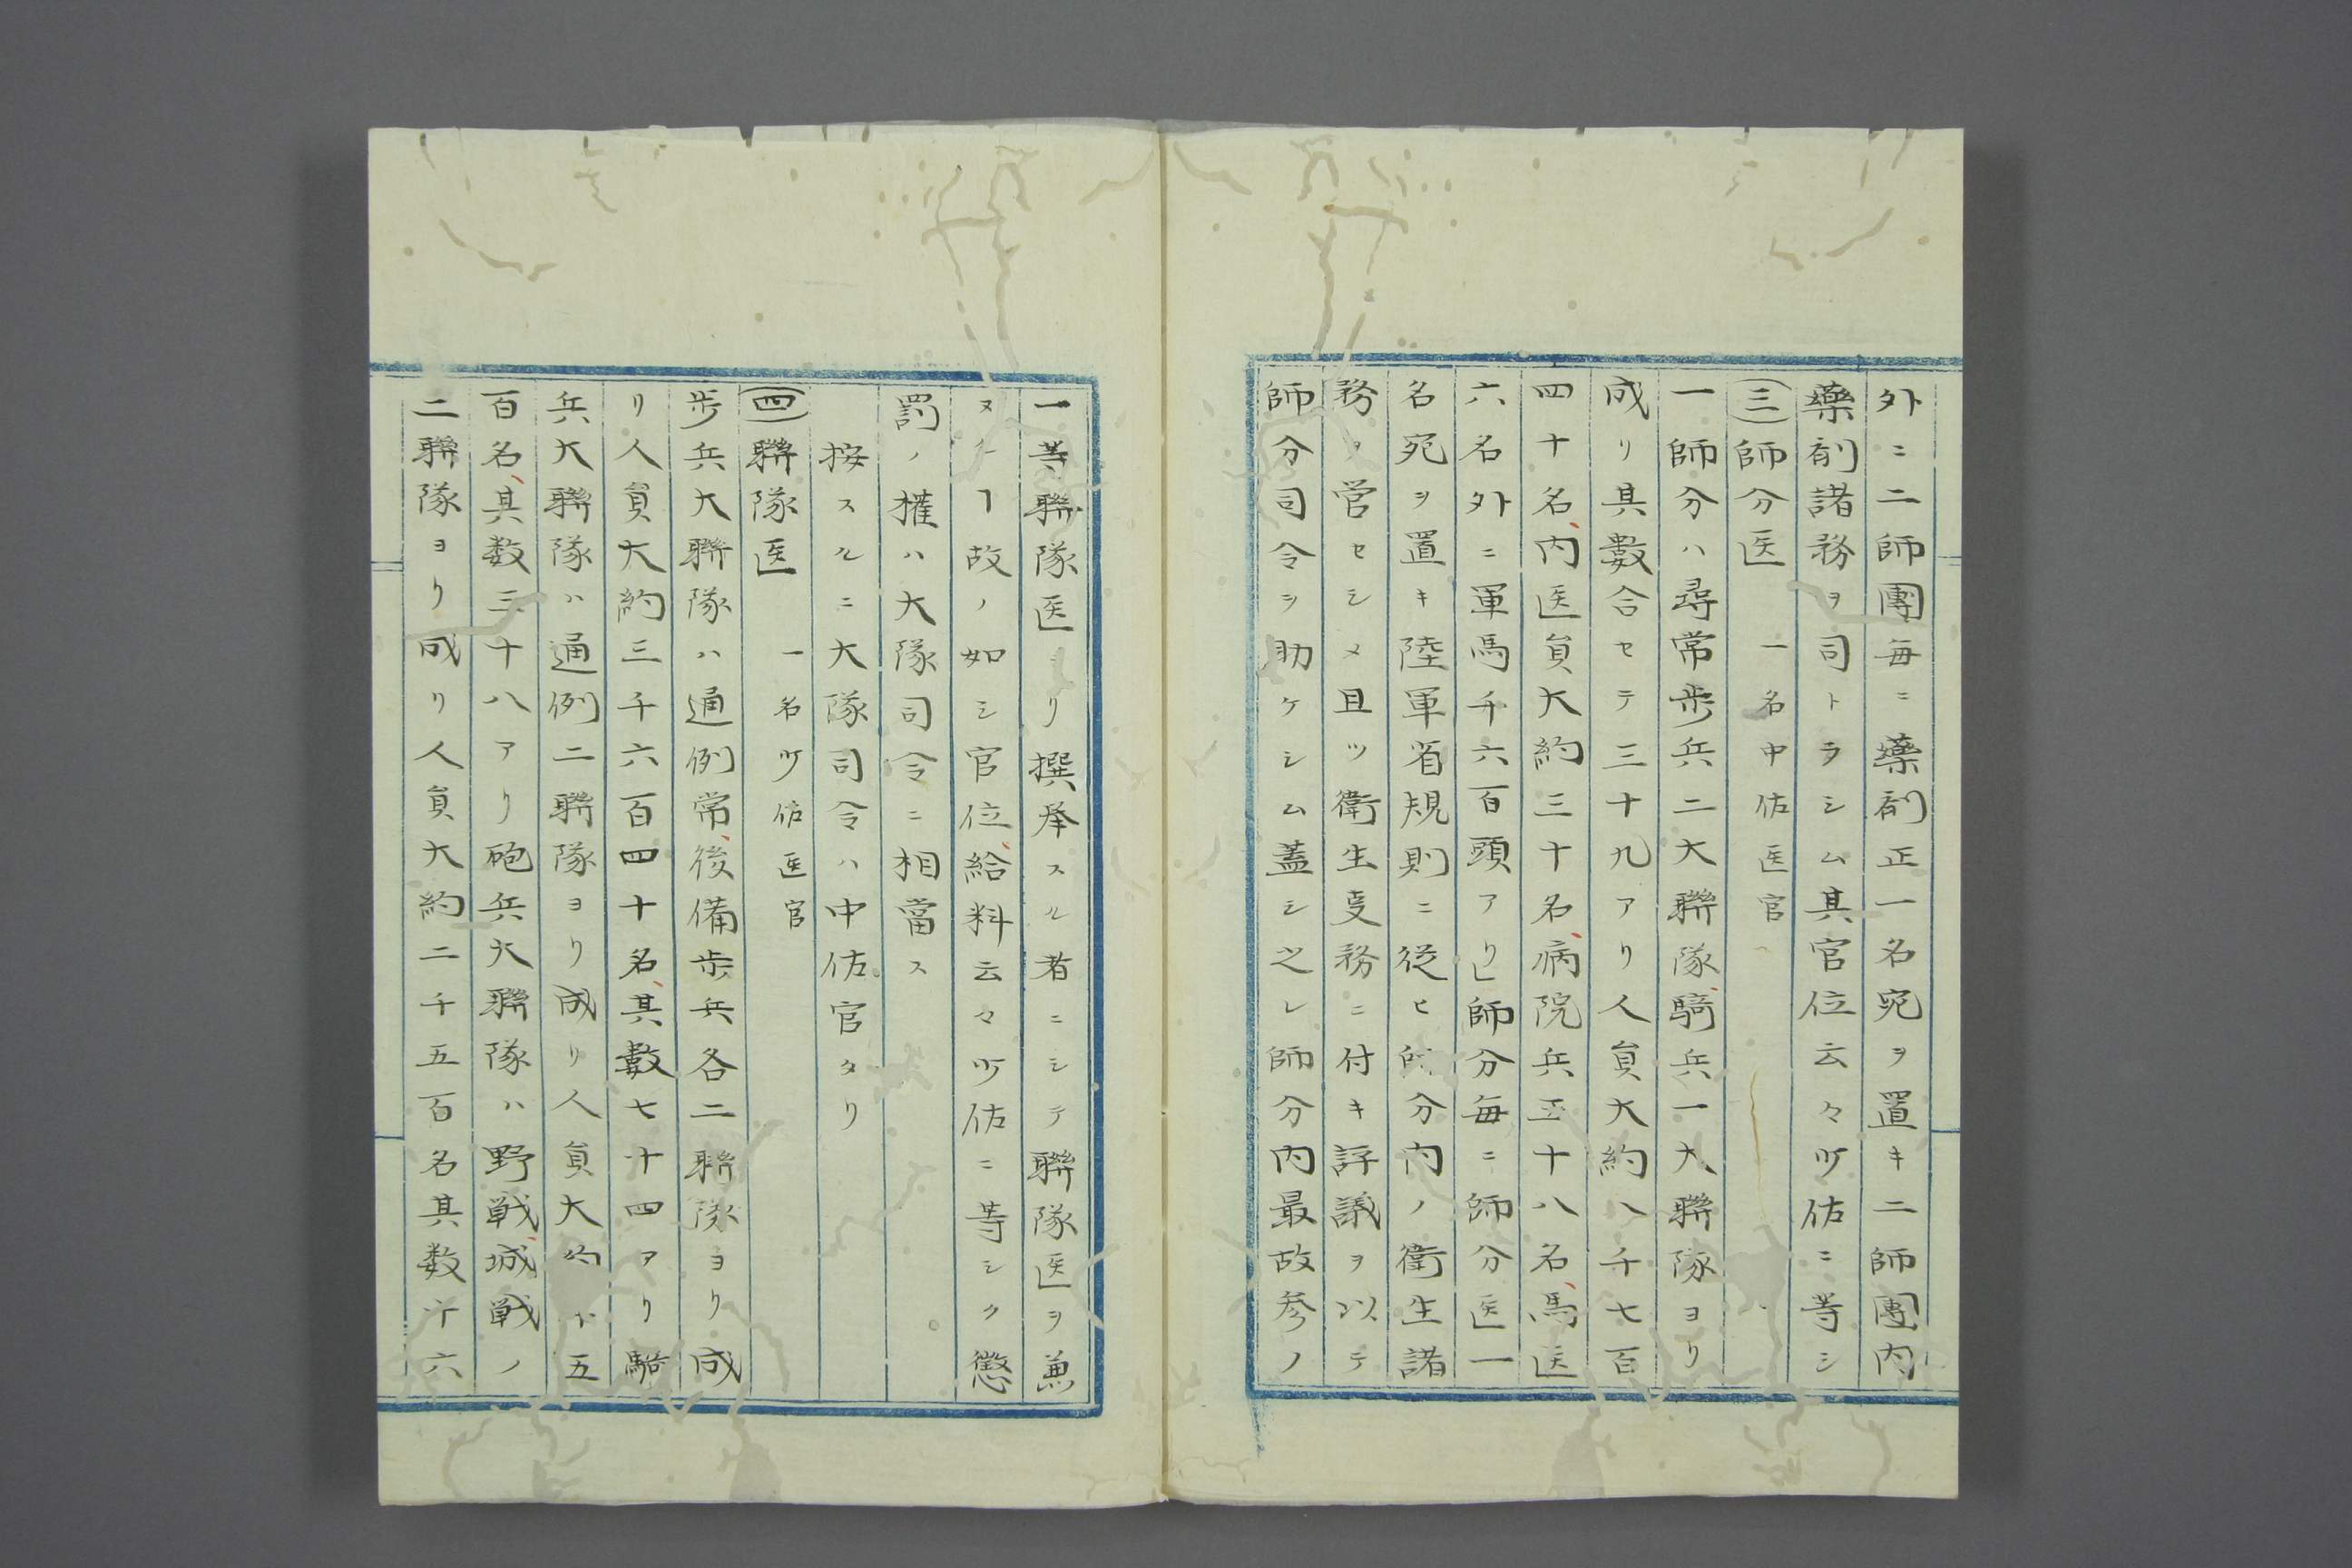 外ニ二師團毎ニ藥剤正一名宛ヲ置キ二師團内
藥剤諸務ヲ司トラシム其官位云々少佐ニ等シ
三 師分医 一名中佐医官
一師分ハ尋常歩兵二大聯隊、騎兵一大聯隊ヨリ
成リ其數合セテ三十九アリ人員大約八千七百
四十名、内医員大約三十名、病院兵五十八名、馬医
六名外ニ軍馬千六百頭アリ」師分毎ニ師分医一
名宛ヲ置キ陸軍省規則ニ従ヒ師分内ノ衛生諸
務ヲ営セシメ且ツ衛生支務ニ付キ評議ヲ以テ
師分司令ヲ助ケシム蓋シ之レ師分内最故参ノ
一等聯隊医ヨリ撰挙スル者ニシテ聯隊医ヲ兼
ヌルヿ故ノ如シ官位、給料云々少佐ニ等シク懲
罰ノ権ハ大隊司令ニ相當ス
按スルニ大隊司令ハ中佐官タリ
四 聯隊医 一名少佐医官
歩兵大聯隊ハ通例常、後備歩兵各二聯隊ヨリ成
リ人員大約三千六百四十名、其數七十四アリ騎
兵大聯隊ハ通例二聯隊ヨリ成リ人員大約千五
百名、其数三十八アリ砲兵大聯隊ハ野戦、城戦ノ
二聯隊ヨリ成リ人員大約二千五百名其数十六